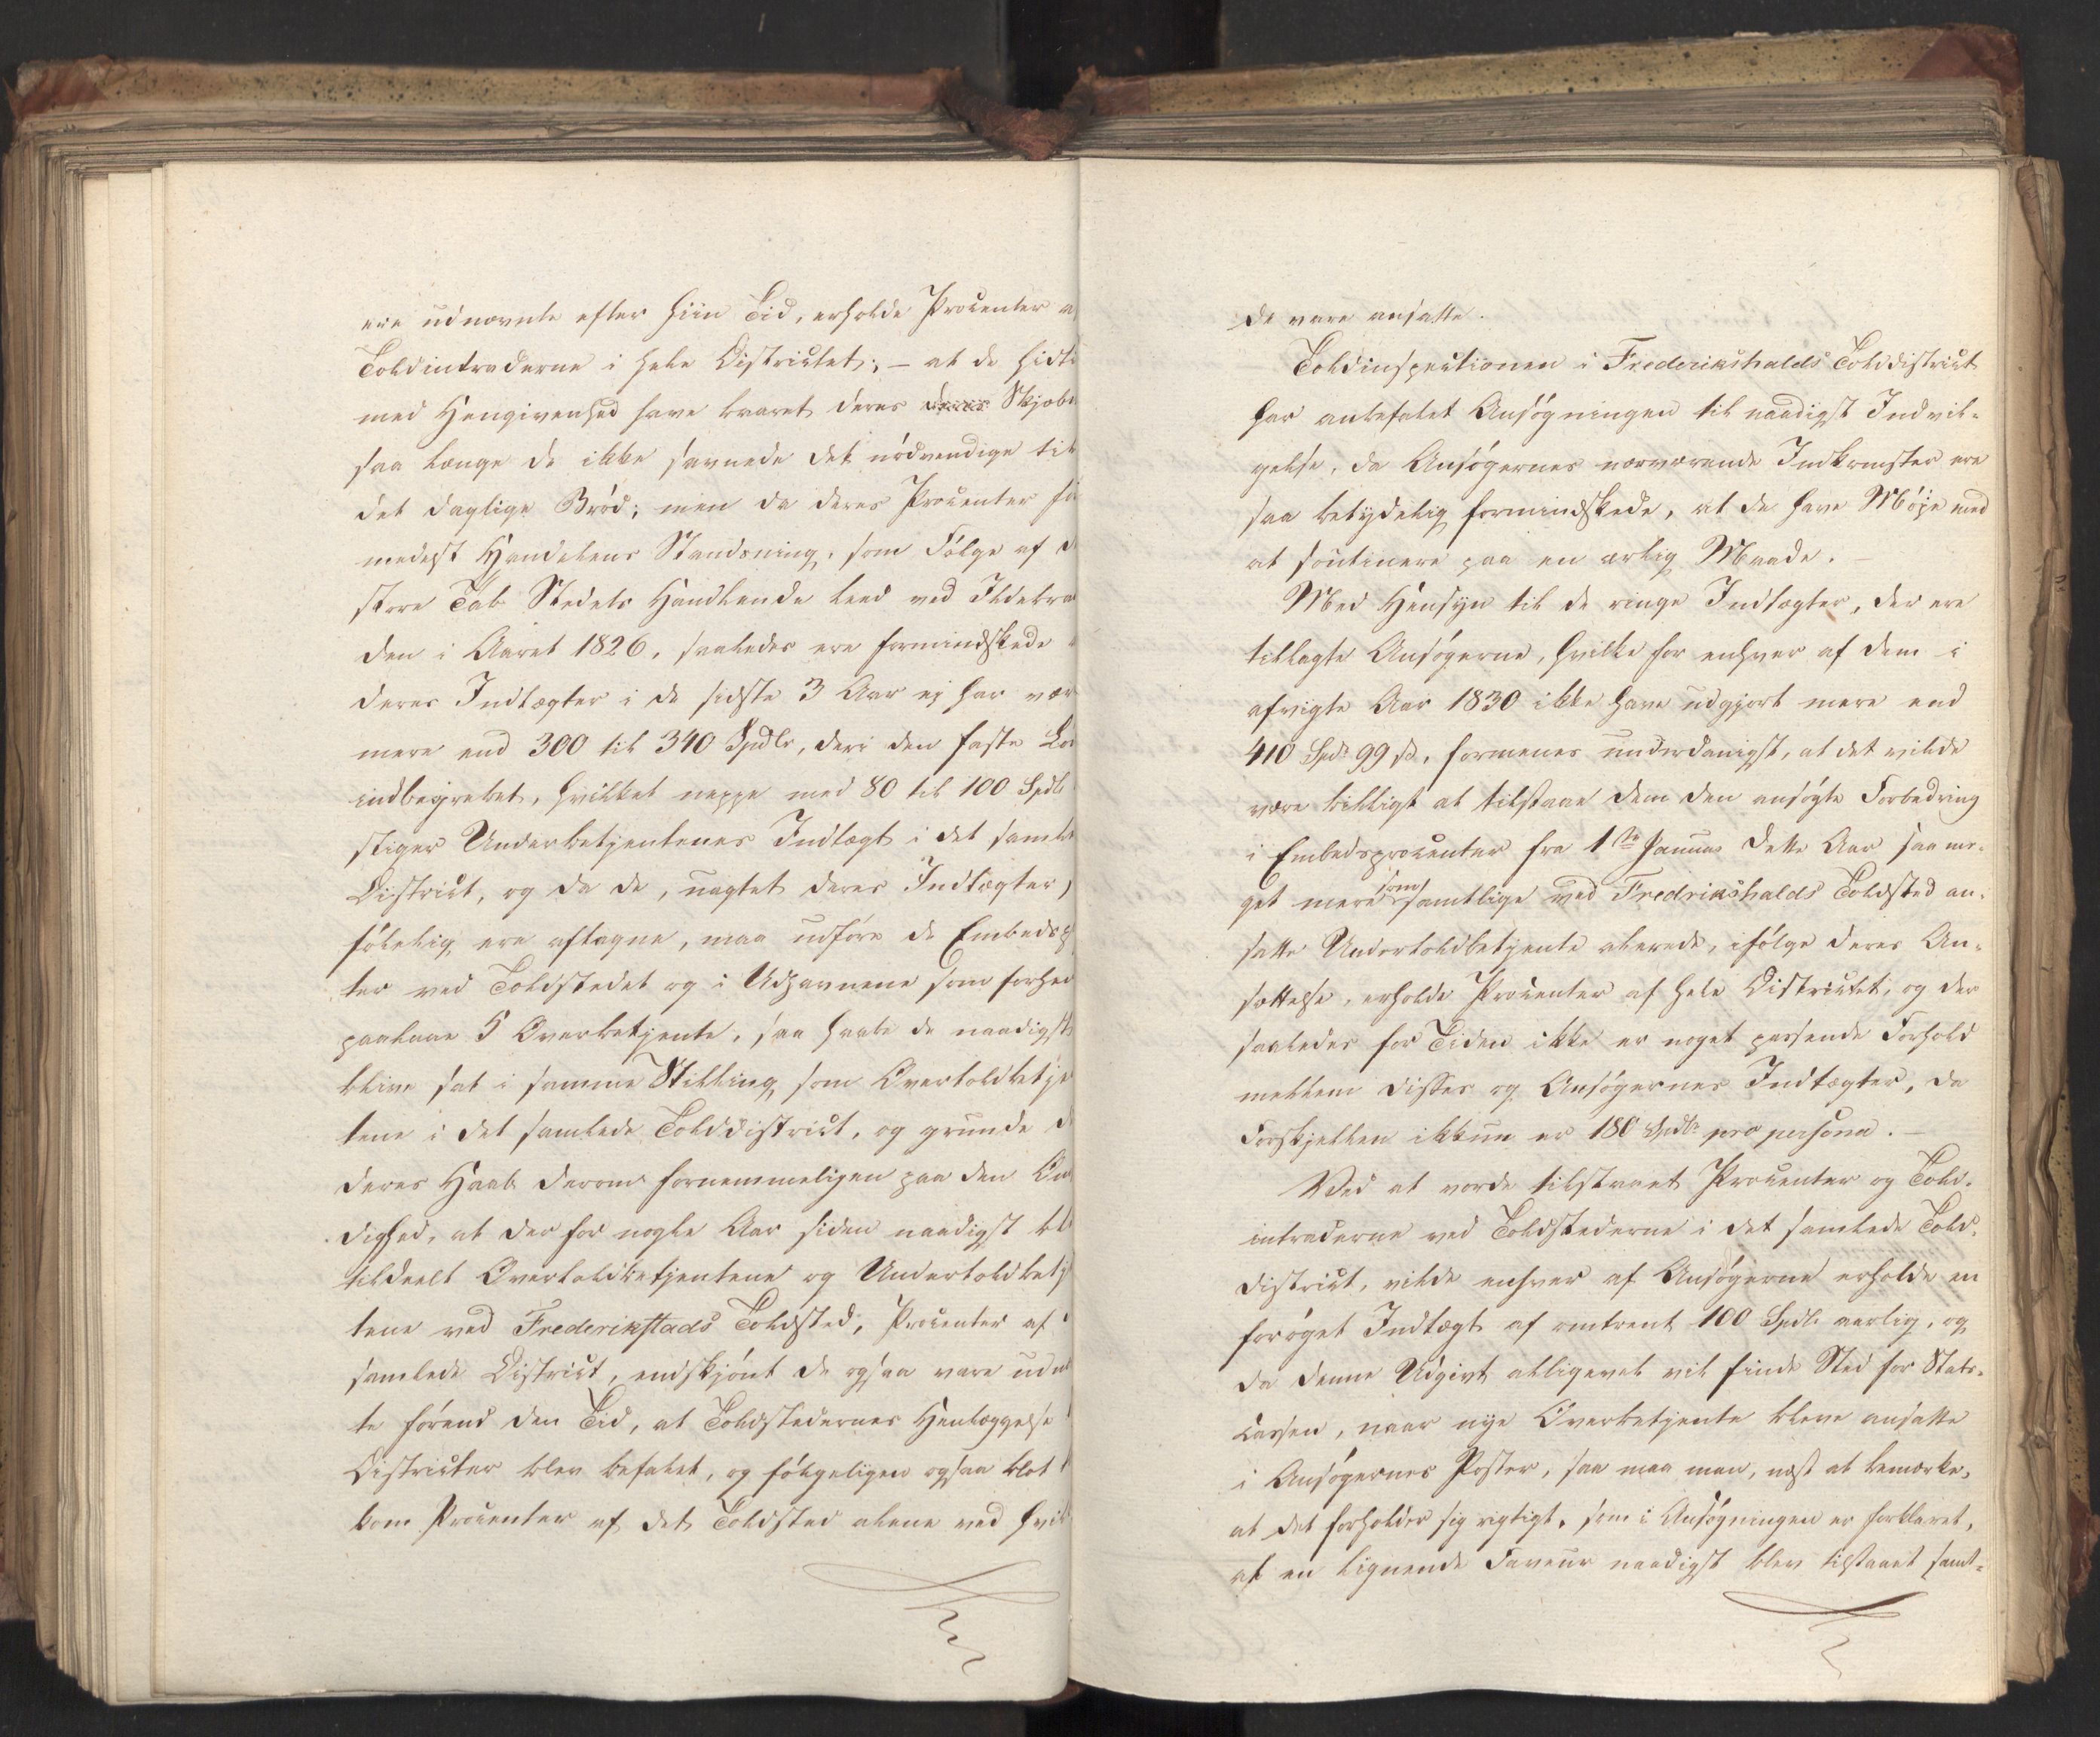 ere udnævnte efter hiin Tid, erholde Procenter a
Toldintraderne i hele Districtet; – at de hidti
med Hengivenhed have baaret deres deres Skjæbn
saa længe de ikke savnede det nödvendige til
det daglige Bröd; men da deres Procenter
medelst Handelens Standsning, som Fölge af d
store Tab Stedets Handlende leed ved Ildebran
den i Aaret 1826, saaledes ere formindskede
deres Indtægter i de sidste 3 Aar ej har vær
mere end 300 til 340 Spdlr, deri den faste Lön
indbegrebet, hvilket neppe med 80 til 100 Spdlr
stiger Underbetjentenes Indtægt i det samle
District, og da de, uagtet deres Indtægter,
fölelig ere aftagne, maa udföre de Embedsp
ter ved Toldstedet og i Udhavnene som forhen
paalaae 5 Overbetjente, saa haabe de naadigst
blive sat i samme Stilling som Overtoldbetje
tene i det samlede Tolddistrict, og grunde d
deres Haab derom fornemmeligen paa den Om
dighed, at der for nogle Aar siden naadigst bl
tildeelt Overtoldbetjentene og Undertoldbetj
tene ved Frederikstads Toldsted, Procenter af
samlede District, endskjönt de ogsaa vare udn
te förend den Tid, at Toldstedernes Henlæggelse
Districter blev befalet, og fölgeligen ogsaa blot
kom Procenter af det Toldsted alene ved hvil
de vare ansatte.
Toldinspectionen i Frederikshalds Tolddistrict
har anbefalet Ansögningen til naadigst Indvil-
gelse, da Ansögernes nærværende Indkomster ere
saa betydelig formindskede, at de have Möje med
at soutinere paa en ærlig Maade. –
Med Hensyn til de ringe Indtægter, der ere
tillagte Ansögerne, hvilke for enhver af dem i
afvigte Aar 1830 ikke have udgjort mere end
410 Spd 99 s, formenes underdanigst, at det vilde
være billigt at tilstaae dem den ansögte Forbedring
i Embedsprocenter fra 1ste Januar dette Aar saa me-
get mere som samtlige ved Fredrikshalds Toldsted an-
satte Undertoldbetjente allerede, ifölge deres An-
sættelse, erholde Procenter af hele Districtet, og der
saaledes for Tiden ikke er noget passende Forhold
mellem disses og Ansögernes Indtægter, da
Forskjellen ikkun er 180 Spdlr pro persona. –
Ved at vorde tilstaaet Procenter og Told-
intraderne ved Toldstederne i det samlede Told-
district, vilde enhver af Ansögerne erholde en
foröget Indtægt af omtrent 100 Spdlr aarlig, og
da denne Udgivt alligevel vil finde Sted for Stats-
cassen, naar nye Overbetjente bleve ansatte
i Ansögernes Poster, saa maa man, næst at bemærke,
at det forholder sig rigtigt, som i Ansögningen er forklaret,
at en lignende Faveur naadigst blev tilstaaet samt-